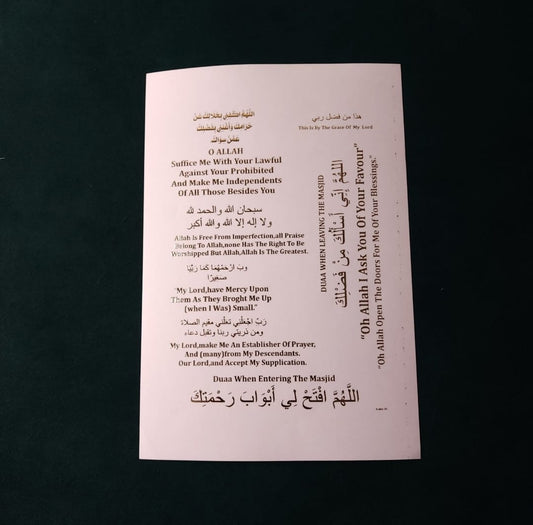 اللَّهُمَّ اكْفِنِي بِحَلَالِكَ عَنْ
حَرَامِكَ وَأَغْنِنِي بِفَضْلِكَ
عَمَّنْ سِوَاكَ
O ALLAH
Suffice Me With Your Lawful
Against Your Prohibited
And Make Me Independents
Of All Those Besides You
سبحان الله والحمد لله
ولا إله إلا الله والله أكبر
Allah Is Free From Imperfection,all Praise
Belong To Allah,none Has The Right To Be
Worshipped But Allah,Allah Is The Greatest.
وبَ ارْحَمْهُمَا كَمَا رَبَّيَا
صَغِيرًا
"My Lord,have Mercy Upon
Them As They Broght Me Up
(when I Was) Small."
رَبِّ اجْعَلْنِي تعلّني مقيم الصلاة
ومن ذريتي ربنا وتقبل دعاء
My Lord,make Me An Establisher Of Prayer,
And (many)from My Descendants.
Our Lord,and Accept My Supplication.
Duaa When Entering The Masjid
اللَّهُمَّ افْتَحْ لِي أَبْوَابَ رَحْمَتِكَ
هذا من فضل ربي
This Is By The Grace Of My Lord
DUAA WHEN LEAVING THE MASJID
اللهُمَّ إِنِّي أَسْأَلُكَ مِنْ فَضْلِكَ
"Oh Allah I Ask You Of Your Favour"
"Oh Allah Open The Doors For Me Of Your Blessings."